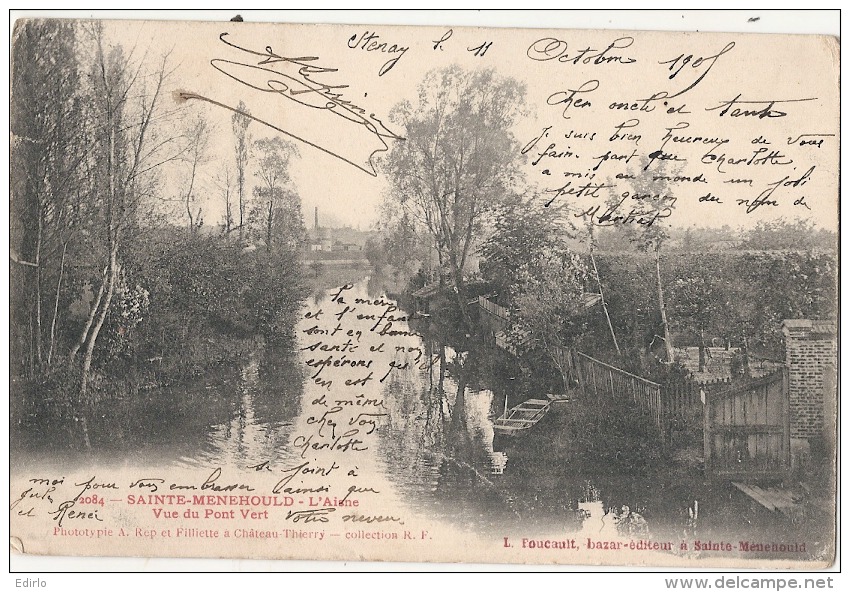 Stenay le 11 Octobre 1905
Cher oncle et tante
Je suis bien heureux de vous
faire part que Charlotte
a mis au monde un joli
petit garçon du nom de
Martial
la mère
et l'enfant
sont en bonne
santé et nous
espérons qu'il
en est
de même
chez vous
Charlotte
se joint à
moi pour vous embrasser ainsi que
Jules
et René
Votre neveu
2084 - SAINTE-MENEHOULD - L'Aisne
Vue du Pont Vert
Phototypie A. Rep et Filliette à Château-Thierry - collection R. F.
L. Foucault, bazar-éditeur à Sainte-Ménehould
Edirlo
http://www.delcampe.net